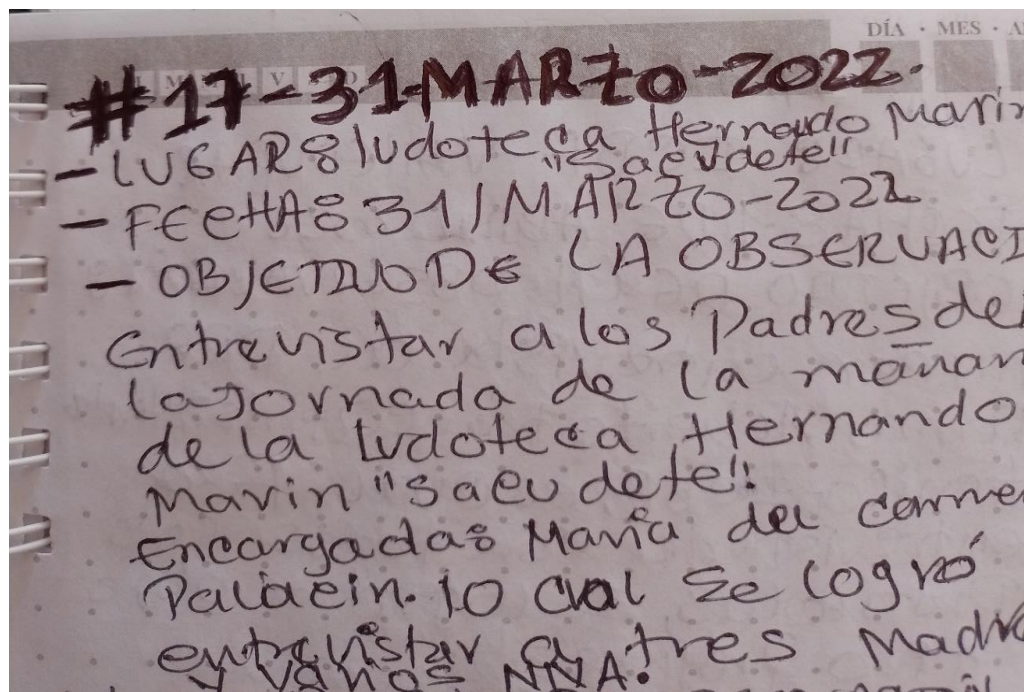 DÍA · MES · A
#17-31 MARZO-2022.
- LUGAR: ludoteca Hernando Marin
"Sacudete"
- FECHA: 31/MARZO-2022
- OBJETIVO DE LA OBSERVACI
Entrevistar a los Padres de
la jornada de la mañan
de la ludoteca Hernando
Marin "sacudete":
Encargada: María del carme
lo cual se logró
entrevistar a tres Madre
y varios NNA.